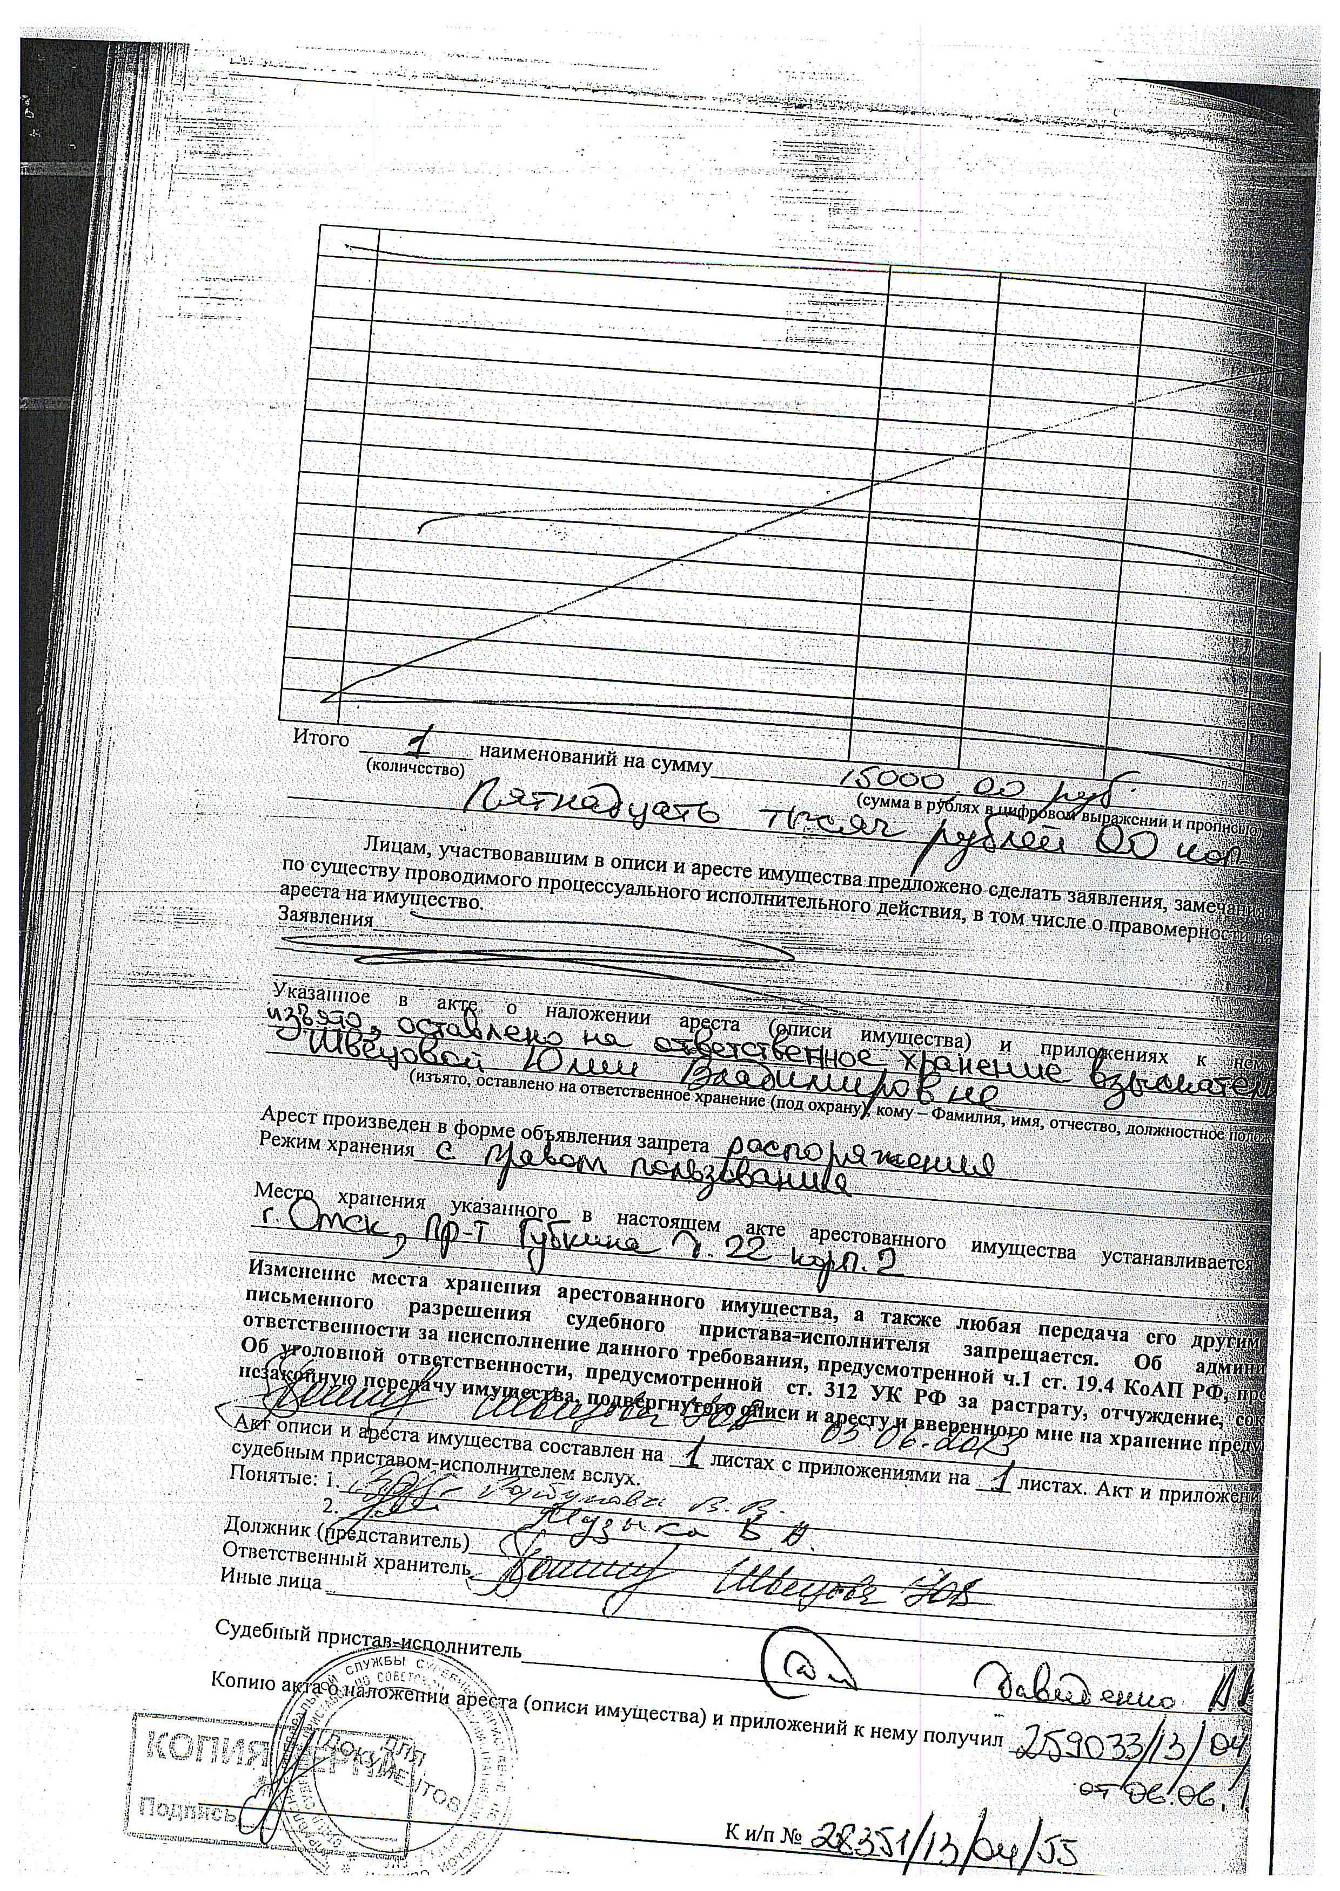 Итого 1 наименований на сумму 15000,00 руб.
(количество) (сумма в рублях в цифровом выражении и прописью)
Пятнадцать тысяч рублей 00 коп
Лицам, участвовавшим в описи и аресте имущества предложено сделать заявления, замечания
по существу проводимого процессуального исполнительного действия, в том числе о правомерности
ареста на имущество.
Заявления
Указанное в акте о наложении ареста (описи имущества) и приложениях к нему
изъято, оставлено на ответственное хранение взыскател
Швецовой Юлии Владимировне
(изъято, оставлено на ответственное хранение (под охрану), кому – Фамилия, имя, отчество, должностное полож
Арест произведен в форме объявления запрета распоряжения
Режим хранения с правом пользования
Место хранения указанного в настоящем акте арестованного имущества устанавливается
г. Омск, пр-т Губкина д. 22 корп. 2
Изменение места хранения арестованного имущества, а также любая передача его другим
письменного разрешения судебного пристава-исполнителя запрещается. Об админи
ответственности за неисполнение данного требования, предусмотренной ч.1 ст. 19.4 КоАП РФ, пре
Об уголовной ответственности, предусмотренной ст. 312 УК РФ за растрату, отчуждение, сок
незаконную передачу имущества, подвергнутого описи и аресту и вверенного мне на хранение преду
Швецова ЮВ 03.06.2013
Акт описи и ареста имущества составлен на 1 листах с приложениями на 1 листах. Акт и приложени
судебным приставом-исполнителем вслух.
Понятые: 1. В. В.
2. Музыка В А.
Должник (представитель)
Ответственный хранитель Швецова ЮВ
Иные лица
Судебный пристав-исполнитель Давиденко
Копию акта о наложении ареста (описи имущества) и приложений к нему получил 259033/13/04/
от 06.06.1
КОПИЯ ВЕРНА
ДЛЯ ДОКУМЕНТОВ
Подпись
К и/п № 28351/13/04/55